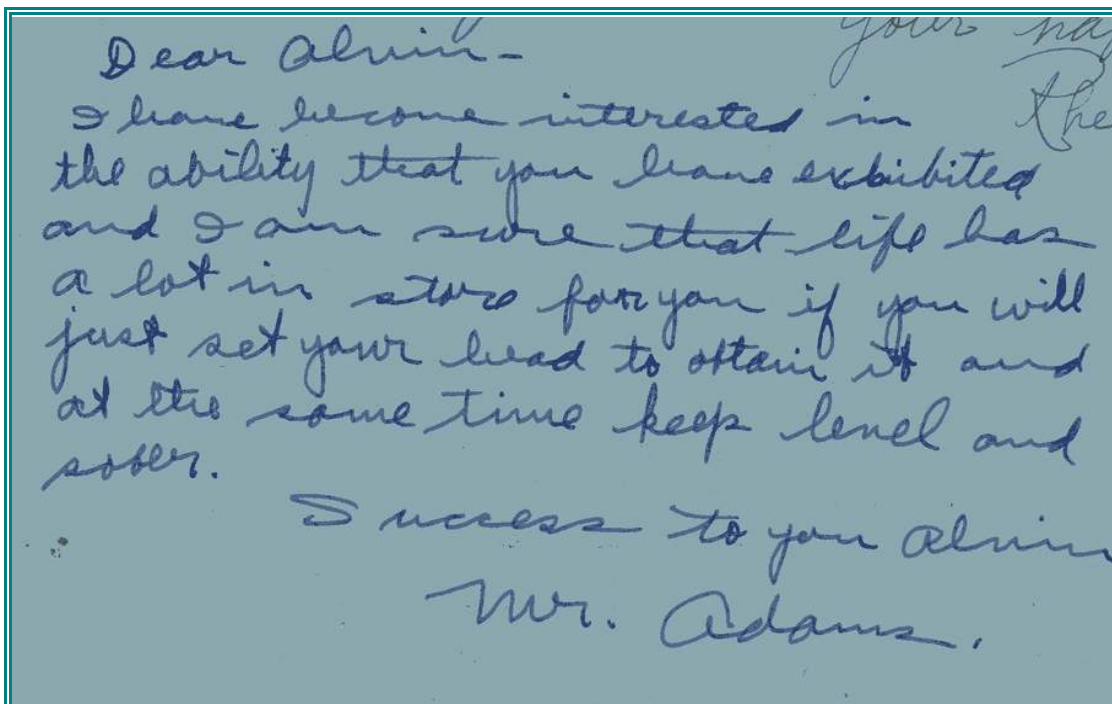 Dear Alvin-
I have become interested in
the ability that you have exhibited
and I am sure that life has
a lot in store for you if you will
just set your head to obtain it and
at the same time keep level and
sober.
Success to you Alvin
Mr. Adams.
your
The